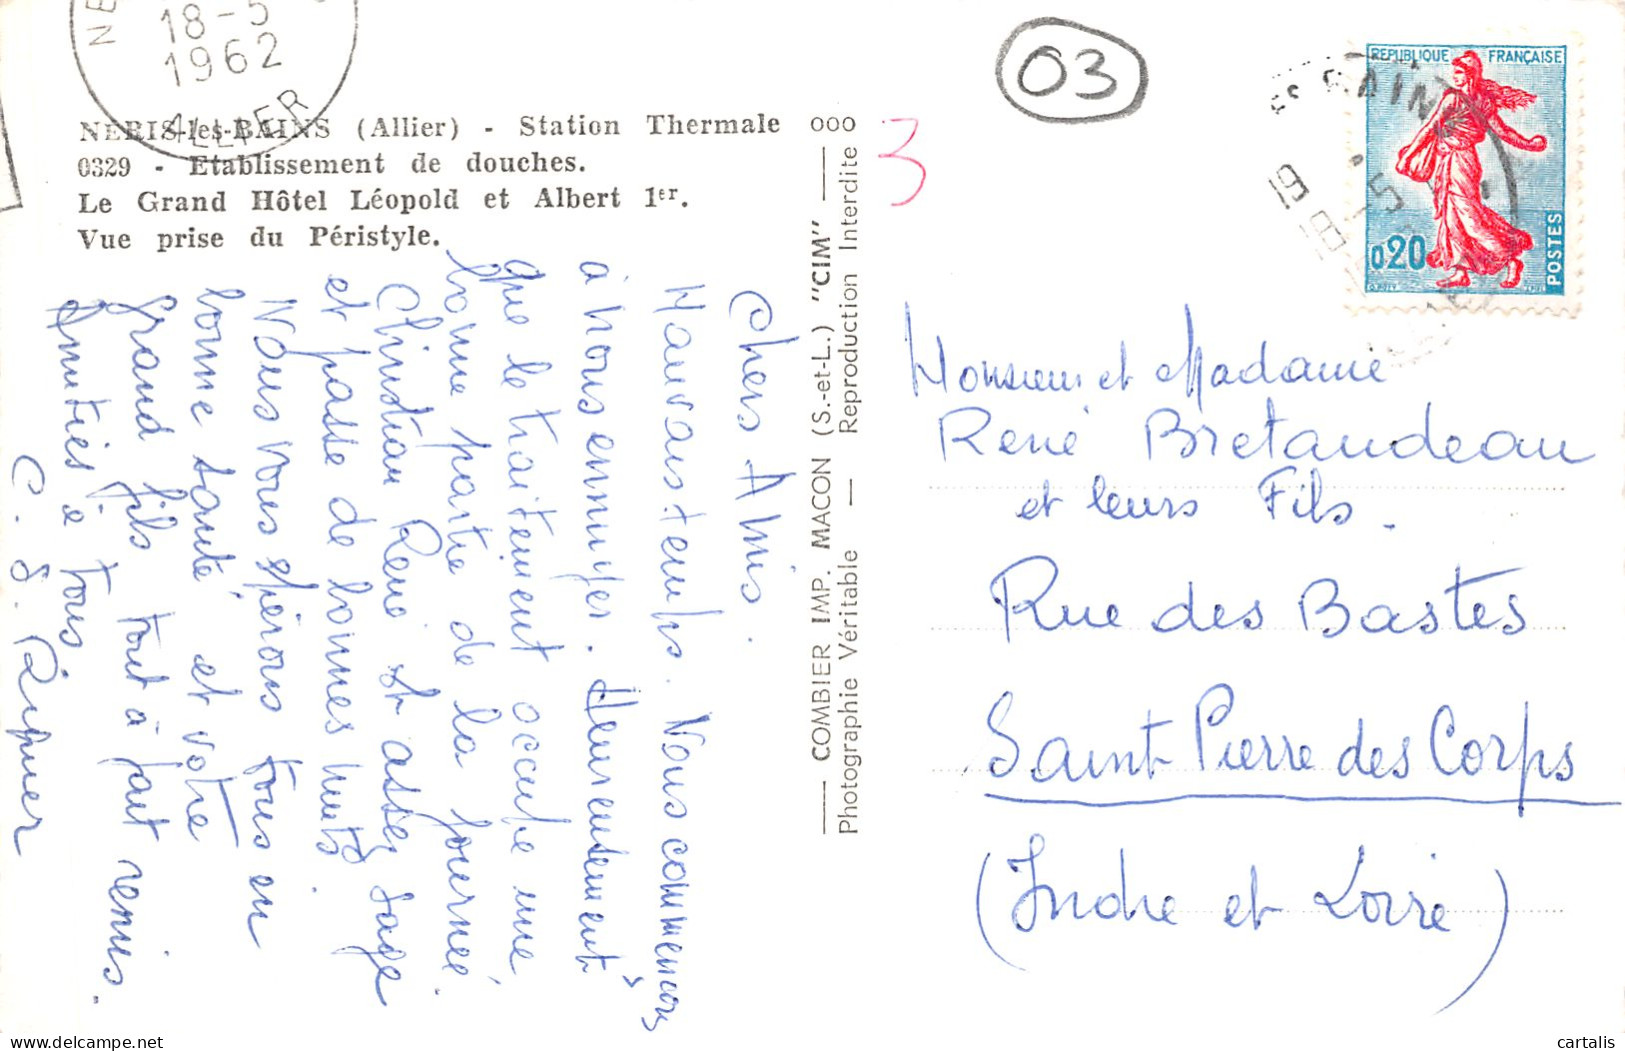 18-5
1962
ALLIER
NERIS-les-BAINS (Allier) - Station Thermale
0329 - Etablissement de douches.
Le Grand Hôtel Léopold et Albert 1er.
Vue prise du Péristyle.
Chers Amis.
Mauvais temps. Nous commençons
à nous ennuyer. Heureusement
que le traitement occupe une
bonne partie de la journée.
Christian René est assez sage
et passe de bonnes nuits.
Nous vous espérons tous en
bonne santé et votre
grand fils tout à fait remis.
Amitiés à tous.
ooo
COMBIER IMP. MACON (S.-et-L.) "CIM"
Photographie Véritable — Reproduction Interdite
03
3
REPUBLIQUE FRANÇAISE
0.20
POSTES
Monsieur et Madame
René Bretaudeau
et leurs Fils.
Rue des Bastes
Saint-Pierre des Corps
(Indre et Loire)
cartalis
delcampe.net